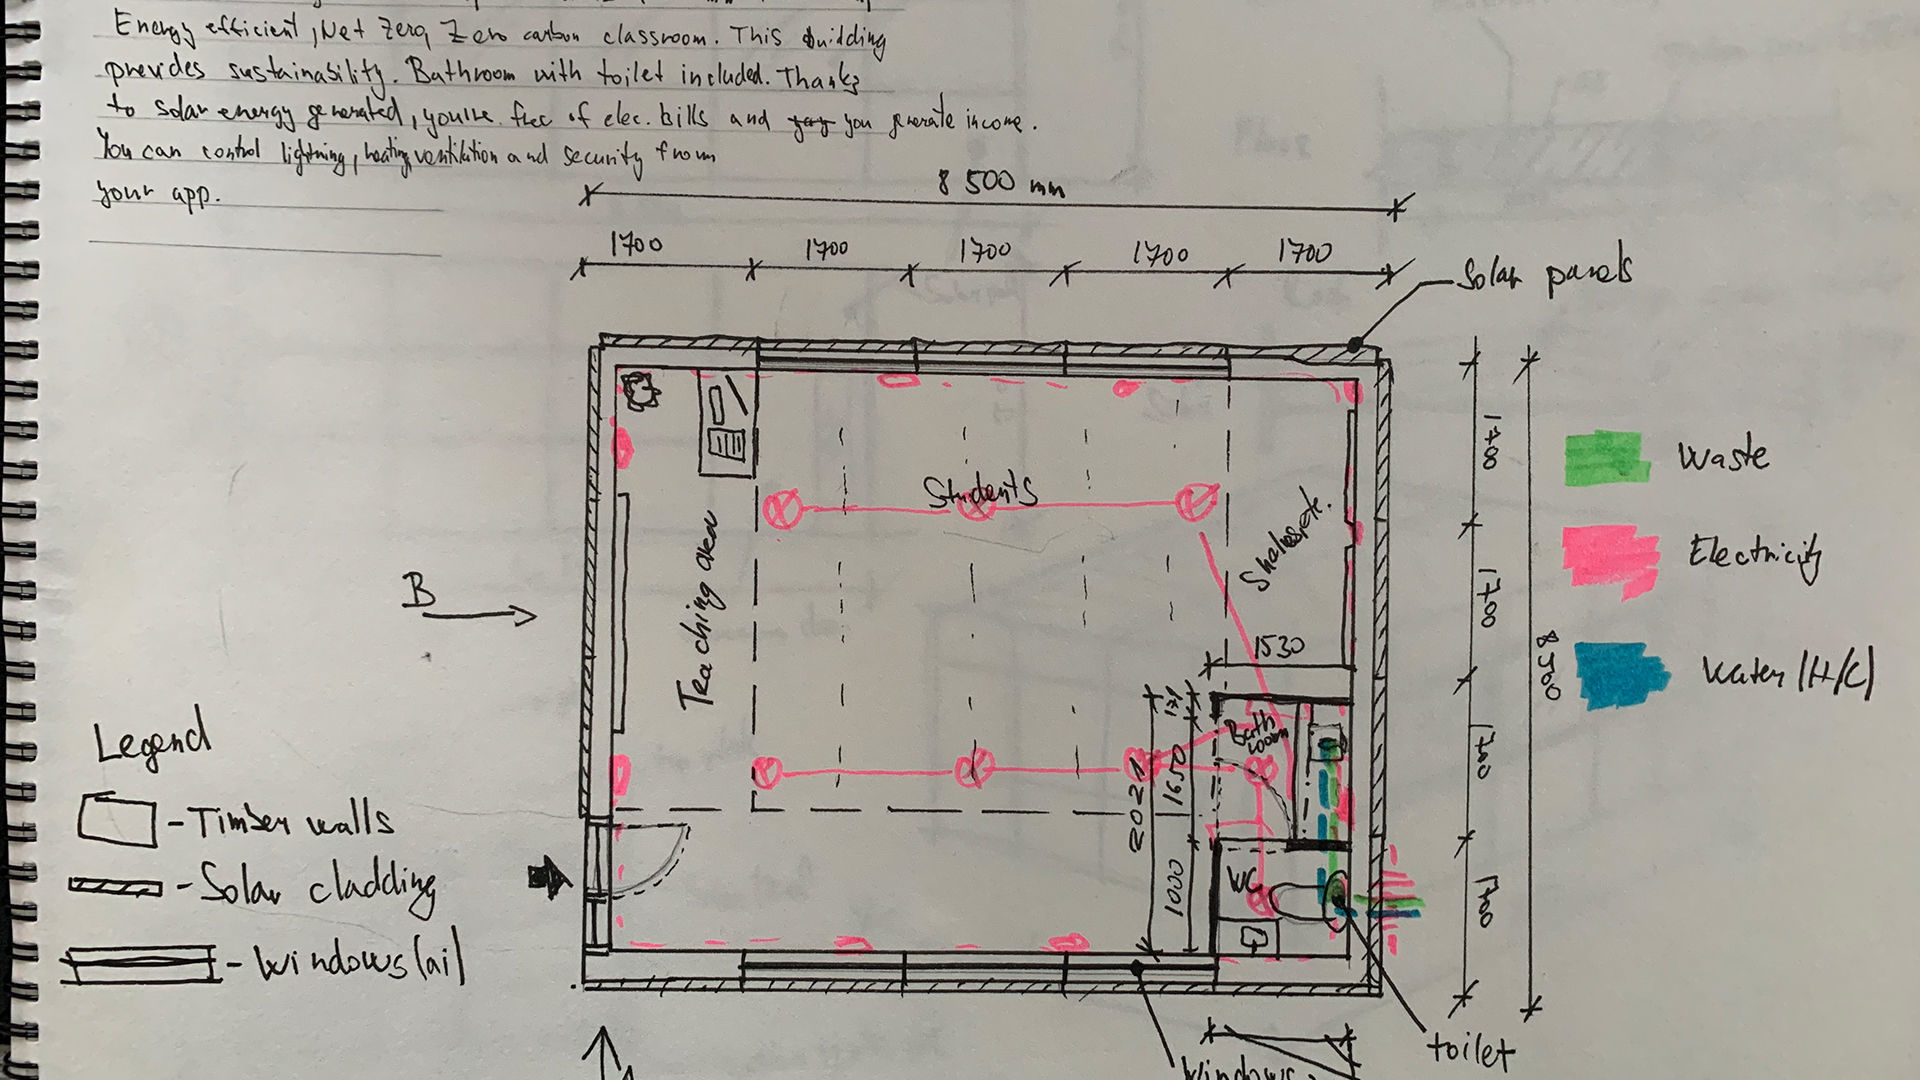 Energy efficient, Net Zero, Zero carbon classroom. This building
provides sustainability. Bathroom with toilet included. Thanks
to solar energy generated, you're free of elec. bills and you generate income.
You can control lightning, heating, ventilation and security from
your app.
8 500 mm
1700 1700 1700 1700 1700
Solar panels
Students
Teaching area
Shelves etc.
1530
Bath
room
171
1650
2021
1000
WC
1700
1700
1700
8500
Waste
Electricity
Water (H/C)
B
Legend
- Timber walls
- Solar cladding
- Windows (al)
toilet
Windows